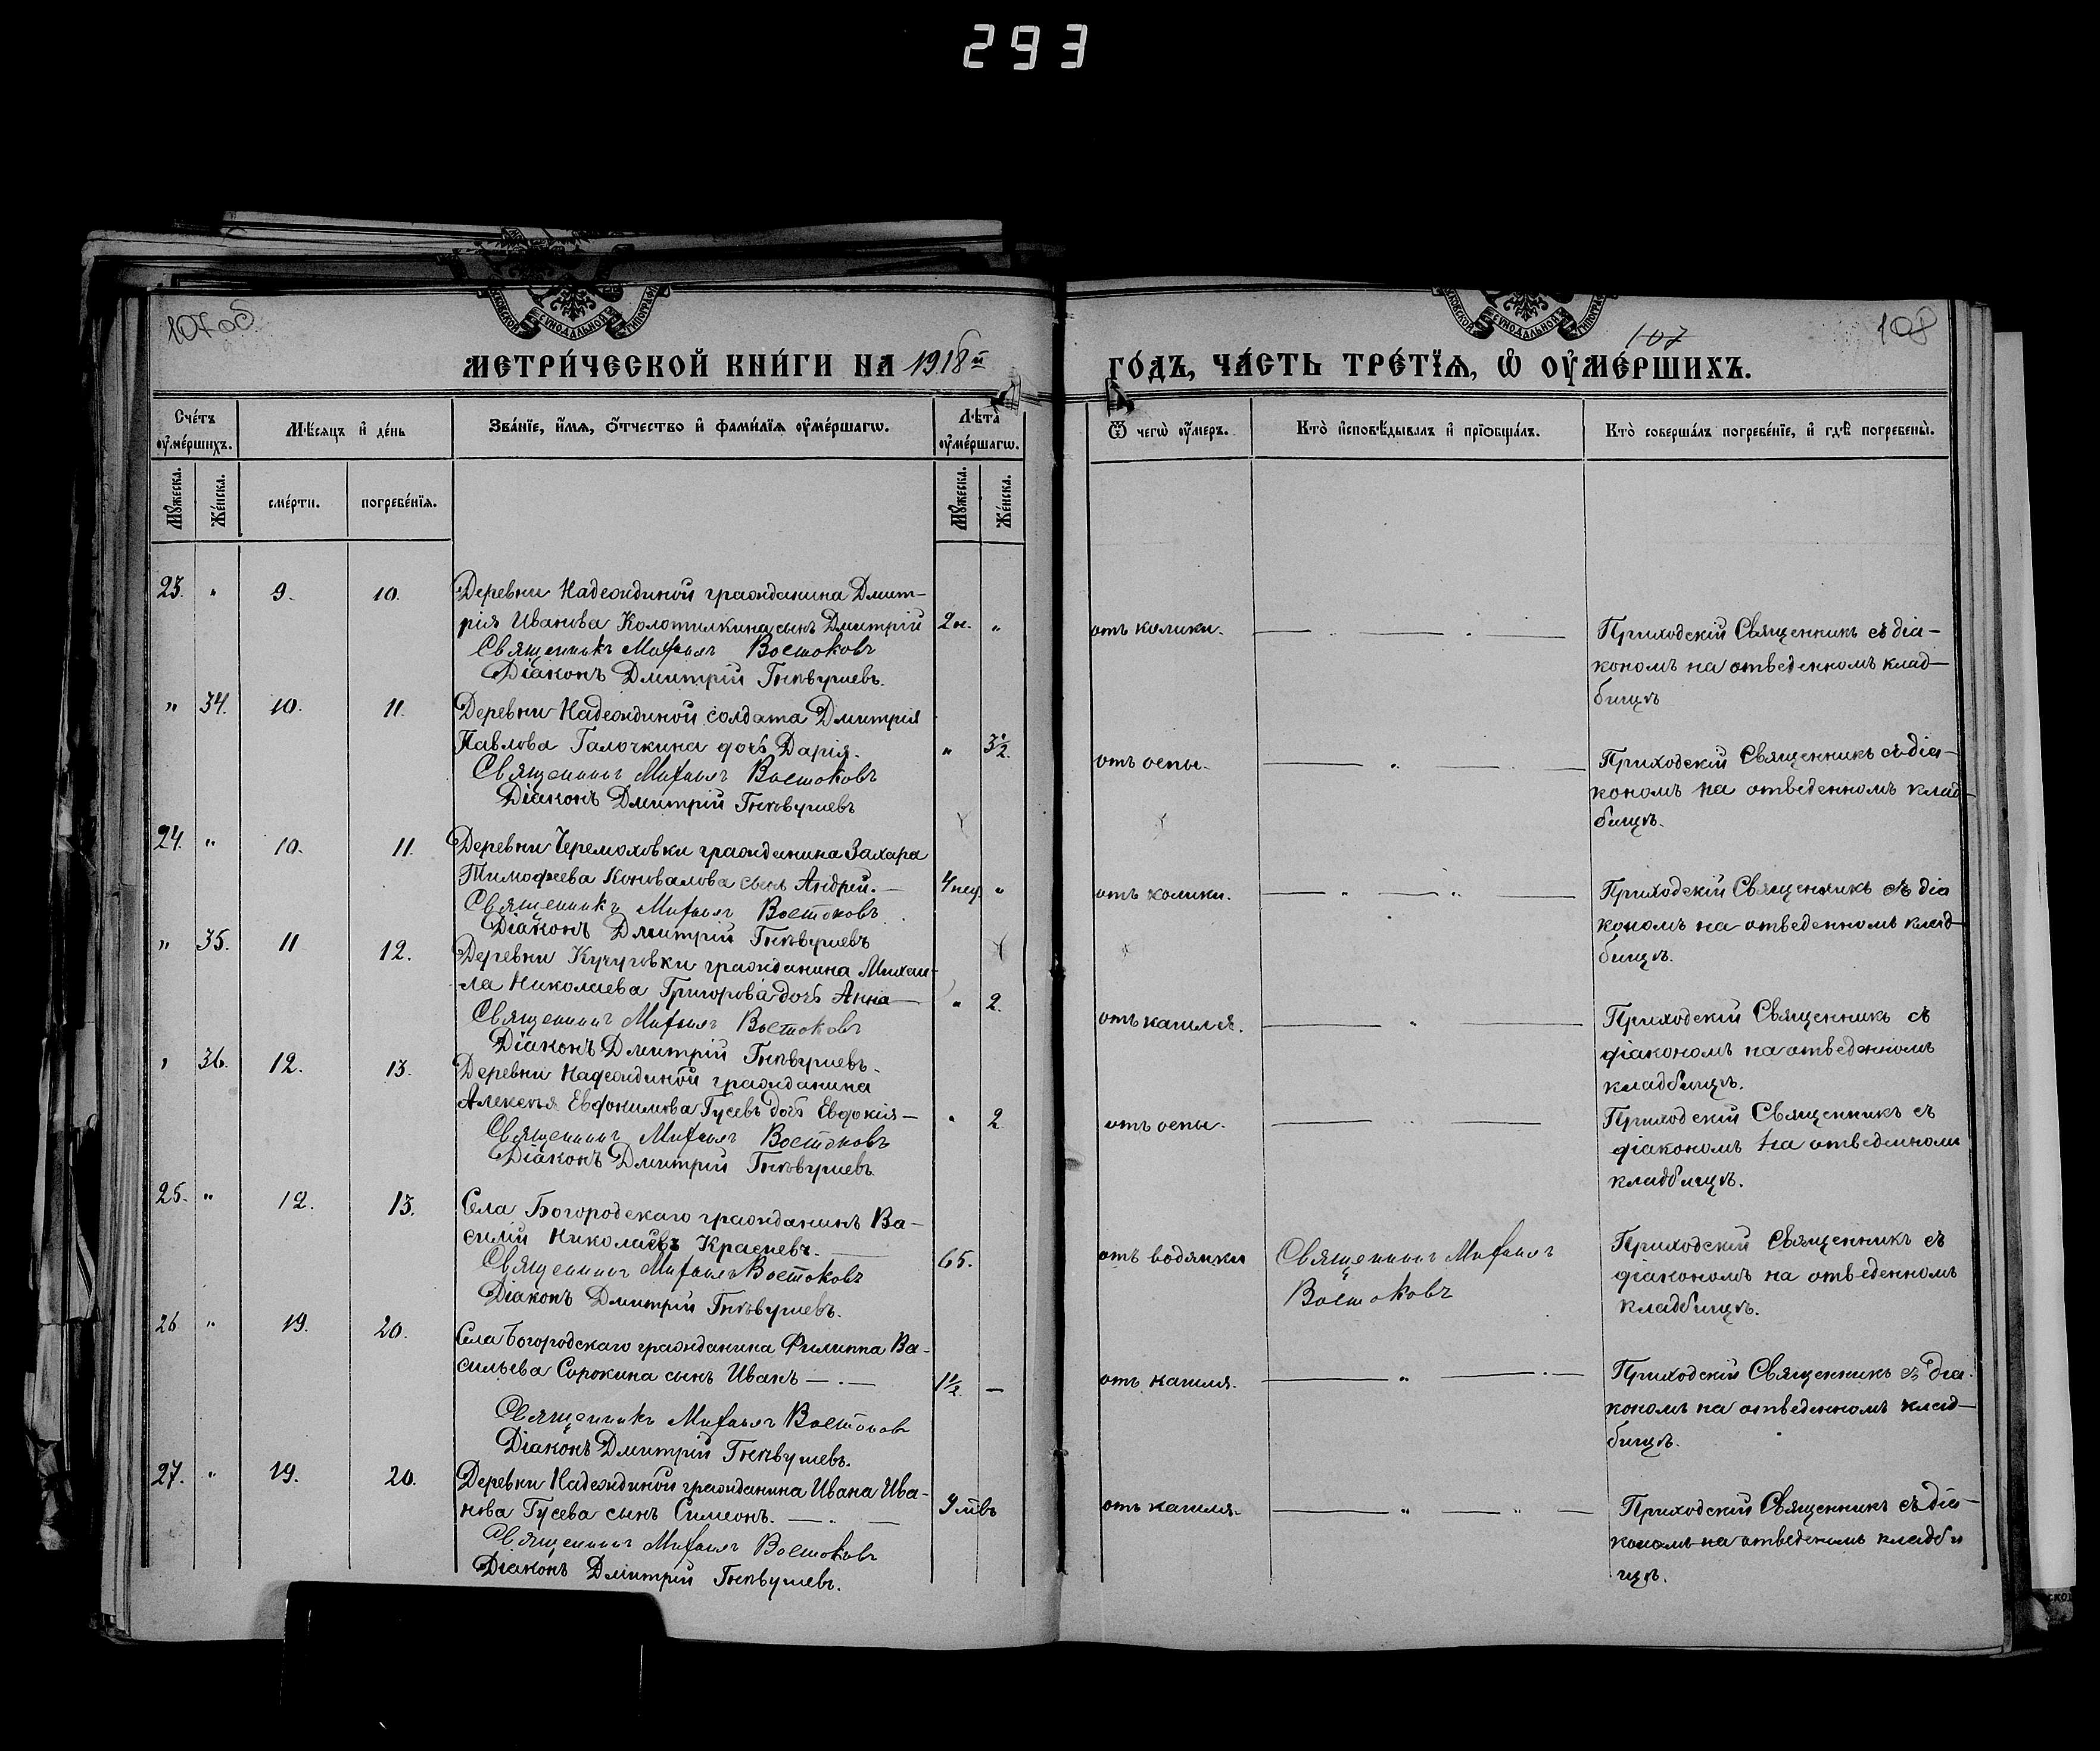 293
107об
107
108
МЕТРИ́ЧЕСКОЙ КНИ́ГИ НА 1918й
ГО́ДЪ, ЧА́СТЬ ТРЕ́ТЇѦ, Ѡ ОУМЕ́РШИХЪ.
Сче́тъ оумершихъ.
Мѣсяцъ и де́нь
Зва́нїе, имя, отчество и фами́лїя оуме́ршагѡ.
Лѣта оуме́ршагѡ.
Ѿ чегѡ оумеръ.
Кто̀ исповѣдывалъ и прїобща́лъ.
Кто̀ соверша́лъ погребе́нїе, и гдѣ погребены̀.
Мужеска. Же́нска. сме́рти. погребе́нїя. Мужеска. Же́нска.
23. " 9. 10. Деревни Надеждиной гражданина Дмит-
рія Иванова Колотилкина сынъ Дмитрій 2 н. "
Священникъ Михаилъ Востоковъ
Діаконъ Дмитрій Гнѣвушевъ.
отъ колики.
Приходскій Священникъ съ діа-
кономъ на отведенномъ клад-
бищѣ
" 34. 10. 11. Деревни Надеждиной солдата Дмитрія
Павлова Галочкина дочь Дарія. " 3½
Священникъ Михаилъ Востоковъ
Діаконъ Дмитрій Гнѣвушевъ
отъ оспы.
Приходскій Священникъ съ діа-
кономъ на отведенномъ клад-
бищѣ.
24. " 10. 11. Деревни Черемоховки гражданина Захара
Тимофеева Коновалова сынъ Андрей. 4 нед. "
Священникъ Михаилъ Востоковъ
Діаконъ Дмитрій Гнѣвушевъ
отъ колики.
Приходскій Священникъ съ діа
кономъ на отведенномъ клад-
бищѣ.
" 35. 11 12. Деревни Кучуровки гражданина Михаи-
ла Николаева Григорова дочь Анна " 2.
Священникъ Михаилъ Востоковъ
Діаконъ Дмитрій Гнѣвушевъ.
отъ кашля.
Приходскій Священникъ съ
діакономъ на отведенномъ
кладбищѣ.
" 36. 12. 13. Деревни Надеждиной гражданина
Алексѣя Евфонимова Гусевъ дочь Евдокія " 2
Священникъ Михаилъ Востоковъ
Діаконъ Дмитрій Гнѣвушевъ
отъ оспы.
Приходскій Священникъ съ
діакономъ на отведенномъ
кладбищѣ.
25. " 12. 13. Села Богородскаго гражданинъ Ва-
силій Николаевъ Красневъ. 65.
Священникъ Михаилъ Востоковъ
Діаконъ Дмитрій Гнѣвушевъ.
отъ водянки
Священникъ Михаилъ
Востоковъ
Приходскій Священникъ съ
діакономъ на отведенномъ
кладбищѣ.
26 " 19. 20. Села Богородскаго гражданина Филиппа Ва-
сильева Сорокина сынъ Иванъ 1½ —
Священникъ Михаилъ Востоковъ
Діаконъ Дмитрій Гнѣвушевъ.
отъ кашля.
Приходскій Священникъ съ діа-
кономъ на отведенномъ клад-
бищѣ.
27. " 19. 20. Деревни Надеждиной гражданина Ивана Ива-
нова Гусева сынъ Симеонъ. 9 мѣ
Священникъ Михаилъ Востоковъ
Діаконъ Дмитрій Гнѣвушевъ.
отъ кашля.
Приходскій Священникъ съ діа-
кономъ на отведеномъ кладби
щѣ.